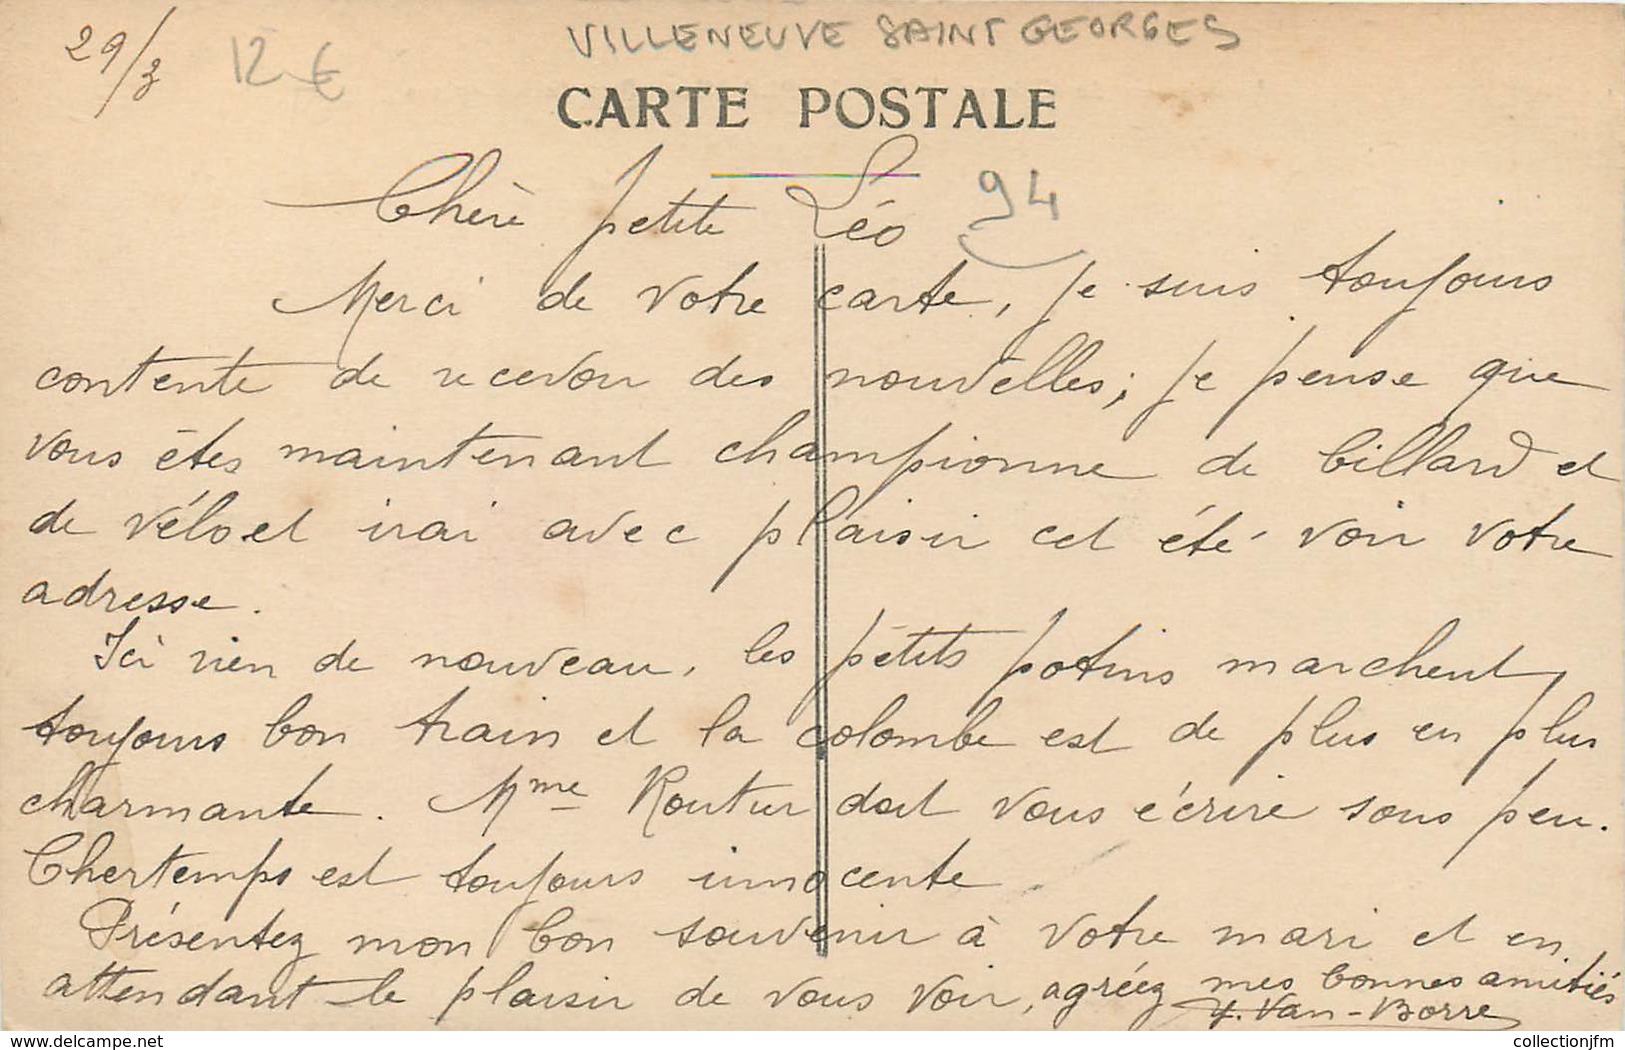 29/3
12 €
VILLENEUVE SAINT GEORGES
CARTE POSTALE
Chère petite Léo
94
Merci de votre carte, je suis toujours
contente de recevoir des nouvelles; je pense que
vous êtes maintenant championne de billard et
de vélo et irai avec plaisir cet été voir votre
adresse.
Ici rien de nouveau, les petits potins marchent
toujours bon train et la colombe est de plus en plus
charmante. Mme Routier doit vous écrire sous peu.
Chertemps est toujours innocente.
Présentez mon bon souvenir à votre mari et en
attendant le plaisir de vous voir, agréez mes bonnes amitiés
Y. Van-Borre
collectionjfm